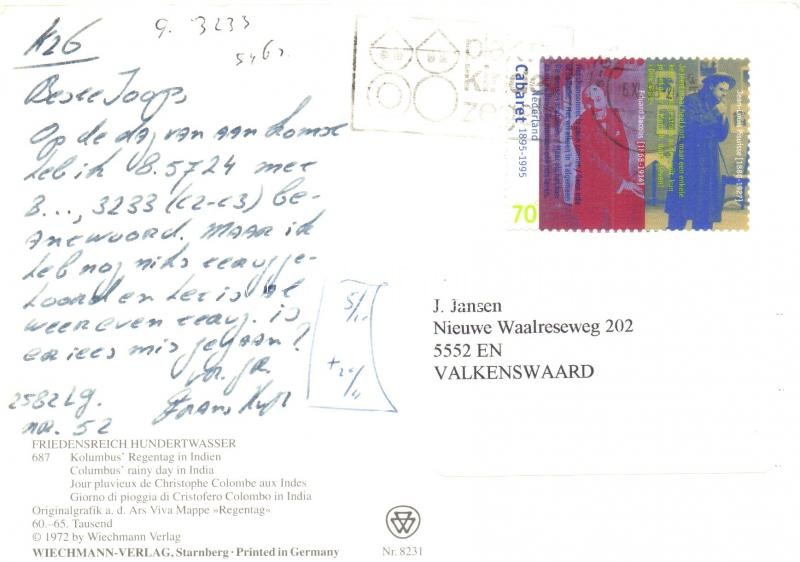 9. 3233
Beste Joop,
Op de dag van aankomst
heb ik 8.5724 met
B..., 3233 (c2-c3) be-
antwoord. Maar ik
heb nog niks terugge-
hoord en het is al
weer even terug. Is
er iets mis gegaan?
vr. gr.
2582Lg.
nar. 52
5/11
+26/11
Nederland
Cabaret 1895-1995
70
Eduard Jacobs [1868-1914]
Jean-Louis Pisuisse [1880-1927]
J. Jansen
Nieuwe Waalreseweg 202
5552 EN
VALKENSWAARD
FRIEDENSREICH HUNDERTWASSER
687 Kolumbus' Regentag in Indien
Columbus' rainy day in India
Jour pluvieux de Christophe Colombe aux Indes
Giorno di pioggia di Cristofero Colombo in India
Originalgrafik a. d. Ars Viva Mappe »Regentag«
60.–65. Tausend
© 1972 by Wiechmann Verlag
WIECHMANN-VERLAG, Starnberg · Printed in Germany
Nr. 8231